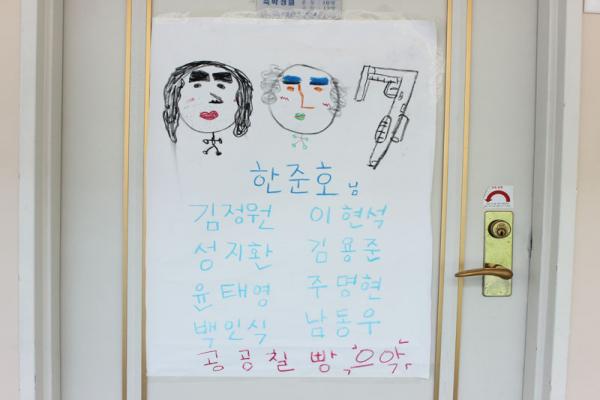 한준호님
김정원 이현석
성지환 김용준
윤태영 주명현
백인식 남동우
공공칠 빵, "으악"